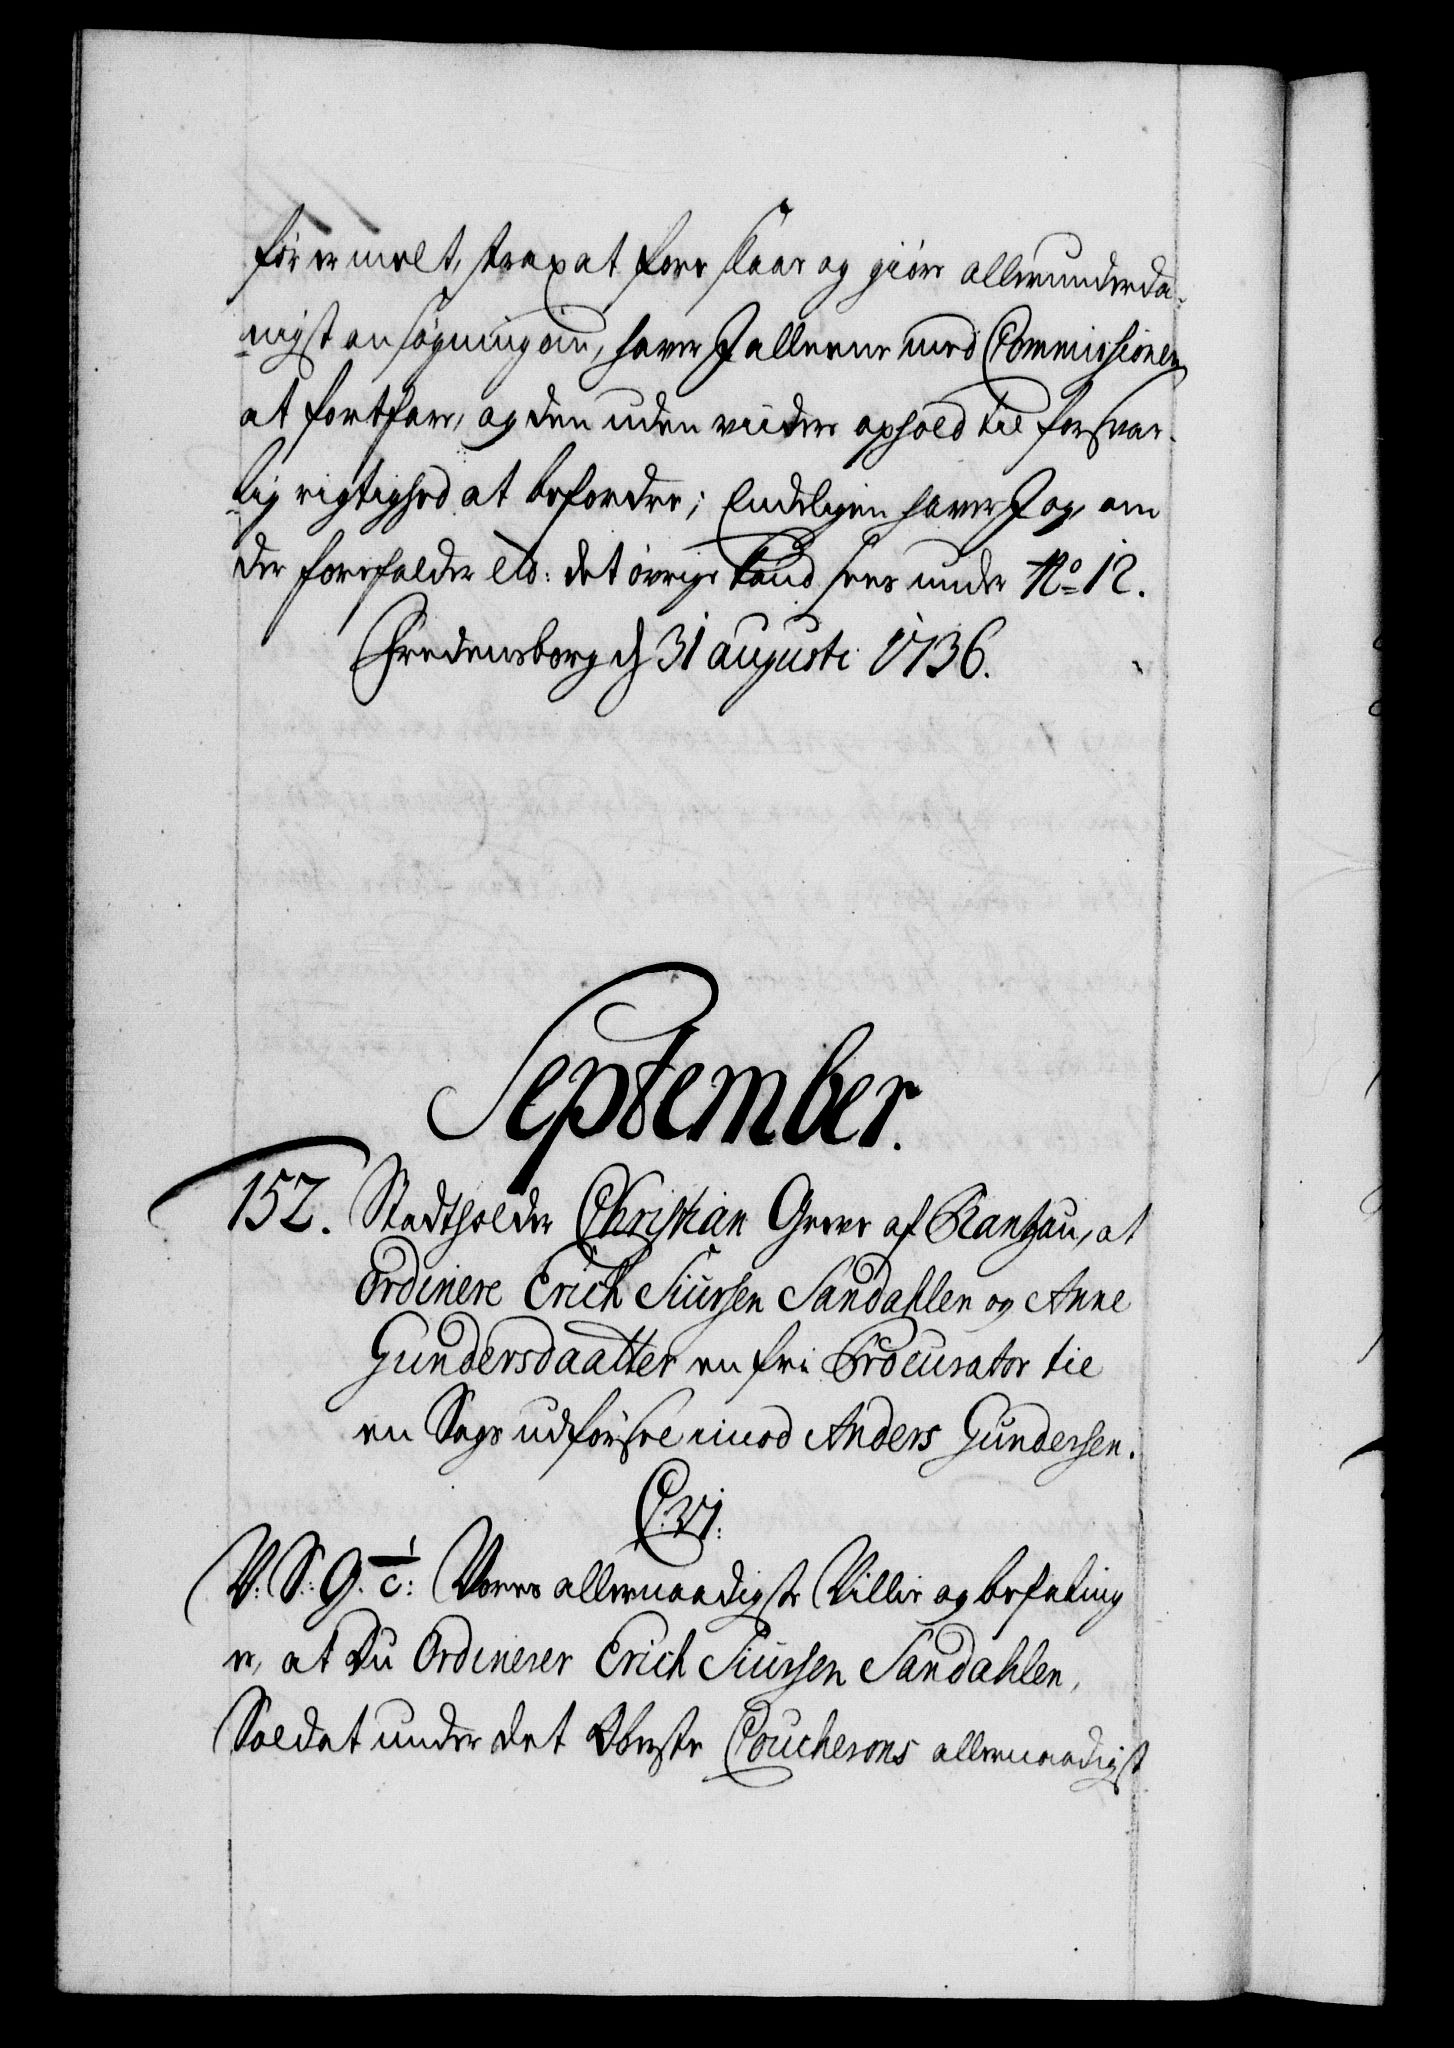 før er melt, strax at fore slaae og giöre allerunderda-
nigst ansøgning om, haver I allerene med Commissionen
at fortfare, og den uden viidere ophold til forsvar-
lig rigtighed at befordre; Endeligen haver I og, om
der forefalder etc: det övrige kand sees under No 12.
Fredensborg d 31 augusti 1736.
September.
152. Stadtholder Christian Greve af Rantzau, at
Ordinere Erich Siursen Sandahlen og Anne
Gundersdaatter en fri Procurator til
en Sags udførsel imod Anders Gundersen.
C. VI.
V. S. G. c: Vores allernaadigste Villie og befaling
er, at Du Ordinerer Erich Siursen Sandahlen,
Soldat under det Obriste Coucherons allernaadigst